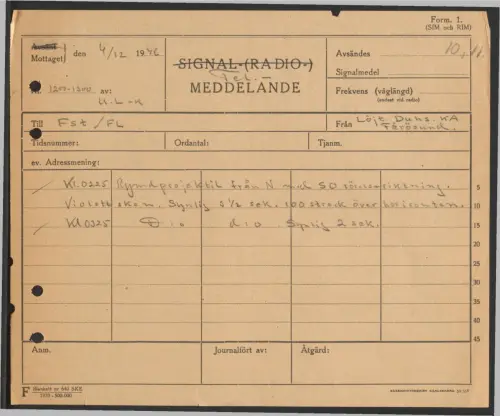 Form. 1.
(SIM och RIM)
Avsänt
Mottaget) den 4/12 1946
SIGNAL-(RADIO-)
Tel. -
MEDDELANDE
Avsändes
Signalmedel
Nr. av:
Frekvens (våglängd)
(endast vid radio)
Till Fst/FL
Från Löjt. KA
Fårösund.
Tidsnummer: Ordantal: Tjänm.
ev. Adressmening:
Kl 0225 Rymdprojektil från N mot SO
Violett sken. Synlig 2 1/2 sek. 100 streck över horisonten.
Kl 0325 D:o d:o Synlig 2 sek.
5
10
15
20
25
30
35
40
45
Anm. Journalfört av: Åtgärd:
F Blankett nr 640 SKE